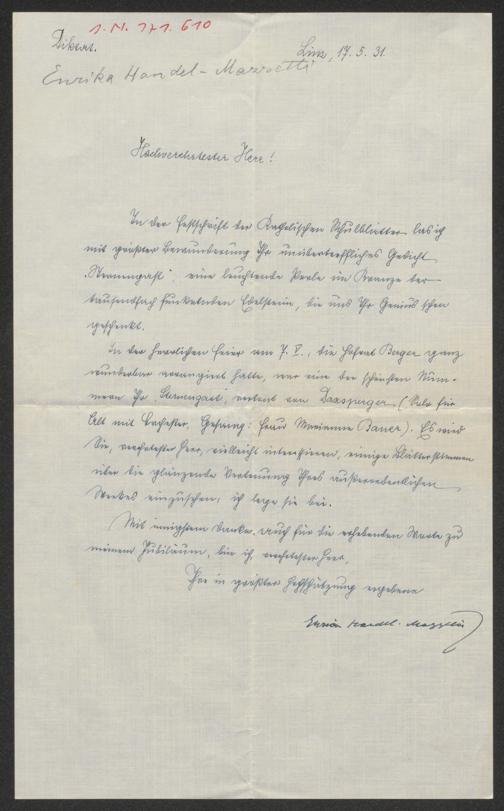 I. N. 171.610
Diktat.
Linz, 17. 5. 31.
Enrika Handel-Mazzetti
Hochverehrtester Herr!
In der Festschrift der Katholischen Schulblätter las ich
mit größter Bewunderung Ihr unübertreffliches Gedicht
„Sternengast", eine leuchtende Perle im Kranze der
tausendfach funkelnden Edelsteine, die uns Ihr Genius schon
geschenkt.
In der herrlichen Feier am 7. V., die Hofrat Berger ganz
wunderbar arrangiert hatte, war eine der schönsten Num-
mern Ihr „Sternengast", vertont von Daxsperger (Solo für
Alt mit Orchester, Gesang: Frau Marianne Bauer). Es wird
Sie, verehrtester Herr, vielleicht interessieren, einige Blätterstimmen
über die glänzende Vertonung Ihres außerordentlichen
Werkes einzusehen; ich lege sie bei.
Mit innigstem Danke, auch für die erhebenden Worte zu
meinem Jubiläum, bin ich, verehrtester Herr,
Ihre in größter Hochschätzung ergebene
Enrica Handel-Mazzetti